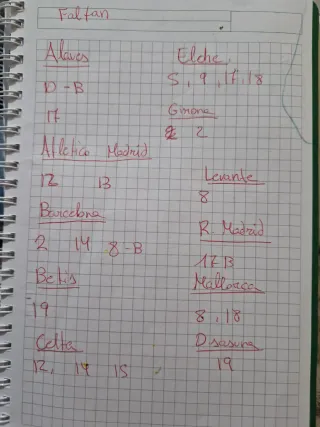 Faltan
Alaves
D - B
17
Atletico Madrid
12 13
Barcelona
2 14 8-B
Betis
19
Celta
12, 14 15
Elche
5, 9, 17, 18
Girona
2
Levante
8
R. Madrid
17B
Mallorca
8, 18
Osasuna
19